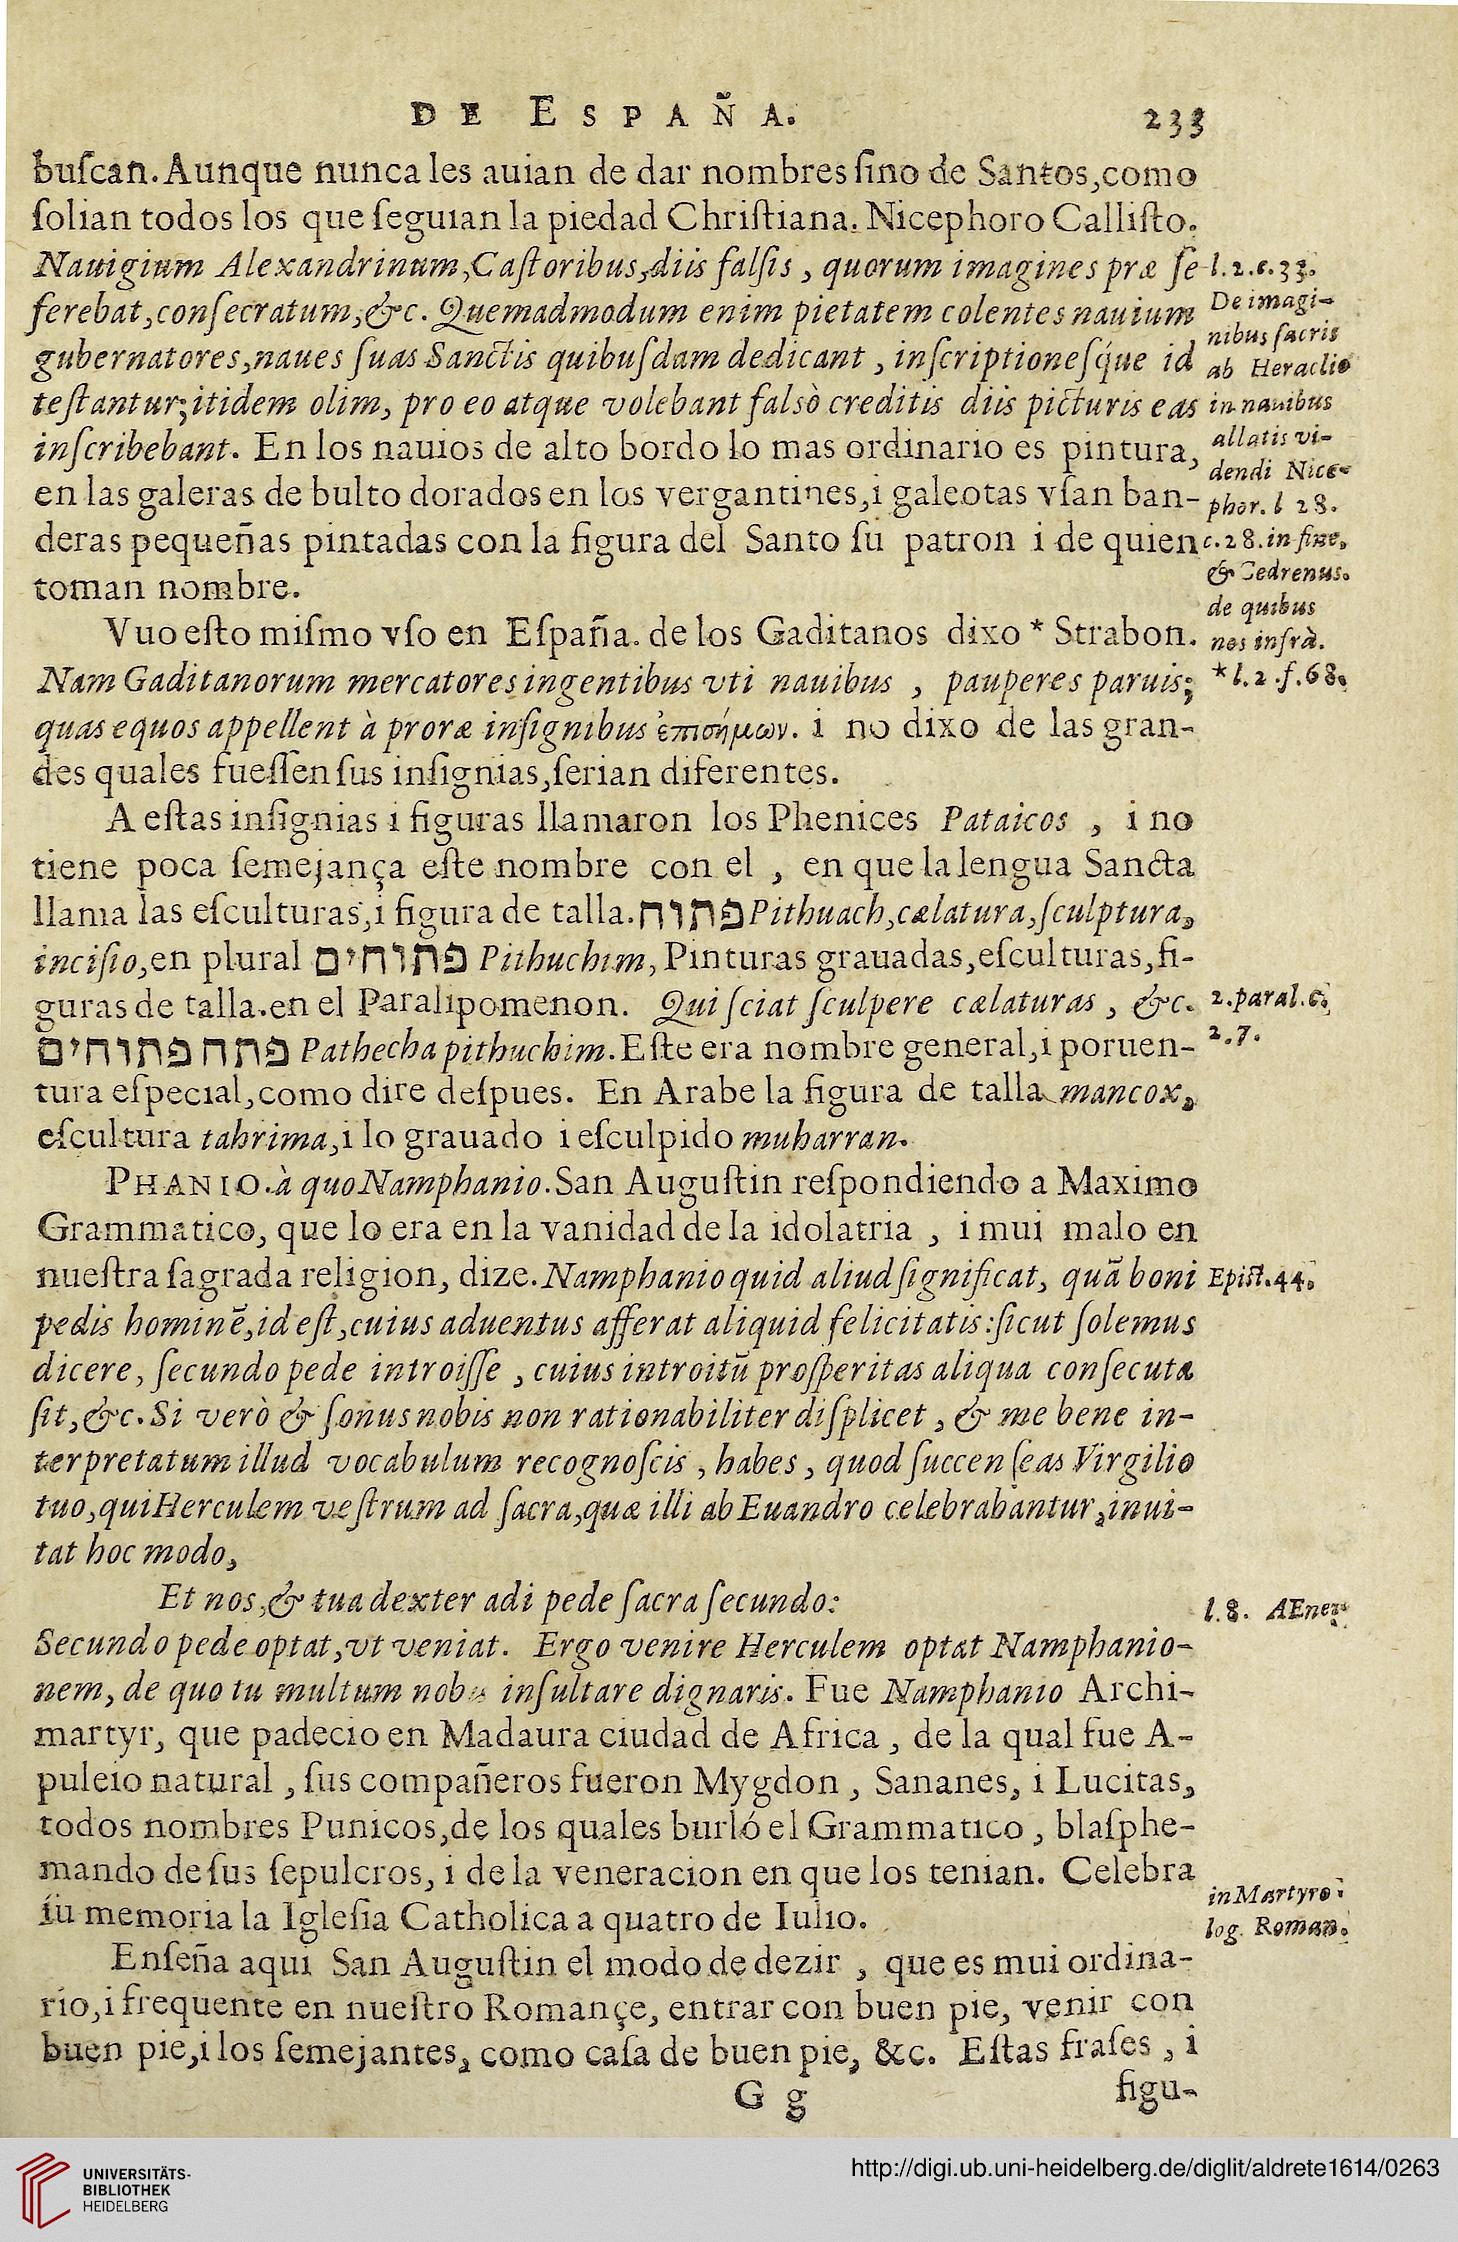 DE ESPAÑA.
233
buſcan. Aunque nunca les auian de dar nombres ſino de Santos, como
ſolian todos los que ſeguian la piedad Chriſtiana. Nicephoro Calliſto.
Nauigium Alexandrinum, Caſtoribus, diis falſis, quorum imagines præ ſe
ferebat, conſecratum, &c. Quemadmodum enim pietatem colentes nauium
gubernatores, naues ſuas Sanctis quibuſdam dedicant, inſcriptioneſq́ue id
teſtantur; itidem olim, pro eo atque volebant falsò creditis diis picturis eas
inſcribebant. En los nauios de alto bordo lo mas ordinario es pintura,
en las galeras de bulto dorados en los vergantines, i galeotas vſan ban-
deras pequeñas pintadas con la figura del Santo ſu patron i de quien
toman nombre.
l.2.c.33.
De imagi-
nibus ſacris
ab Heraclio
in nauibus
allatis vi-
dendi Nice-
phor. l 28.
c.28. in fine,
& Cedrenus.
de quibus
nos infrà.
Vuo eſto miſmo vſo en Eſpaña. de los Gaditanos dixo * Strabon.
Nam Gaditanorum mercatores ingentibus vti nauibus, pauperes paruis;
quas equos appellent à proræ inſignibus ἐπισήμων. i no dixo de las gran-
des quales fueſſen ſus inſignias, ſerian diferentes.
* l.2.f.68.
A eſtas inſignias i figuras llamaron los Phenices Pataicos, i no
tiene poca ſemejança eſte nombre con el, en que la lengua Sancta
llama las eſculturas, i figura de talla. פתוח Pithuach, cælatura, ſculptura,
inciſio, en plural פתוחים Pithuchim, Pinturas grauadas, eſculturas, fi-
guras de talla. en el Paralipomenon. Qui ſciat ſculpere cælaturas, &c.
פתח פתוחים Pathecha pithuchim. Eſte era nombre general, i poruen-
tura eſpecial, como dire deſpues. En Arabe la figura de talla mancox,
eſcultura tahrima, i lo grauado i eſculpido muharran.
2.paral.c.
2.7.
PHANIO. à quo Namphanio. San Auguſtin reſpondiendo a Maximo
Grammatico, que lo era en la vanidad de la idolatria, i mui malo en
nueſtra ſagrada religion, dize. Namphanio quid aliud ſignificat, quã boni
pedis hominẽ, id eſt, cuius aduentus afferat aliquid felicitatis: ſicut ſolemus
dicere, ſecundo pede introiſſe, cuius introitũ proſperitas aliqua conſecuta
ſit, &c. Si verò & ſonus nobis non rationabiliter diſplicet, & me bene in-
terpretatum illud vocabulum recognoſcis, habes, quod ſuccenſeas Virgilio
tuo, qui Herculem veſtrum ad ſacra, quæ illi ab Euandro celebrabantur, inui-
tat hoc modo,
Epiſt.44.
Et nos, & tua dexter adi pede ſacra ſecundo:
l.8. AEnei.
Secundo pede optat, vt veniat. Ergo venire Herculem optat Namphanio-
nem, de quo tu multum nobis inſultare dignaris. Fue Namphanio Archi-
martyr, que padecio en Madaura ciudad de Africa, de la qual fue A-
puleio natural, ſus compañeros fueron Mygdon, Sananes, i Lucitas,
todos nombres Punicos, de los quales burló el Grammatico, blaſphe-
mando de ſus ſepulcros, i de la veneracion en que los tenian. Celebra
ſu memoria la Igleſia Catholica a quatro de Iulio.
in Martyro-
log. Roman.
Enſeña aqui San Auguſtin el modo de dezir, que es mui ordina-
rio, i frequente en nueſtro Romançe, entrar con buen pie, venir con
buen pie, i los ſemejantes, como caſa de buen pie, &c. Eſtas fraſes, i
G g
figu-
UNIVERSITÄTS-
BIBLIOTHEK
HEIDELBERG
http://digi.ub.uni-heidelberg.de/diglit/aldrete1614/0263